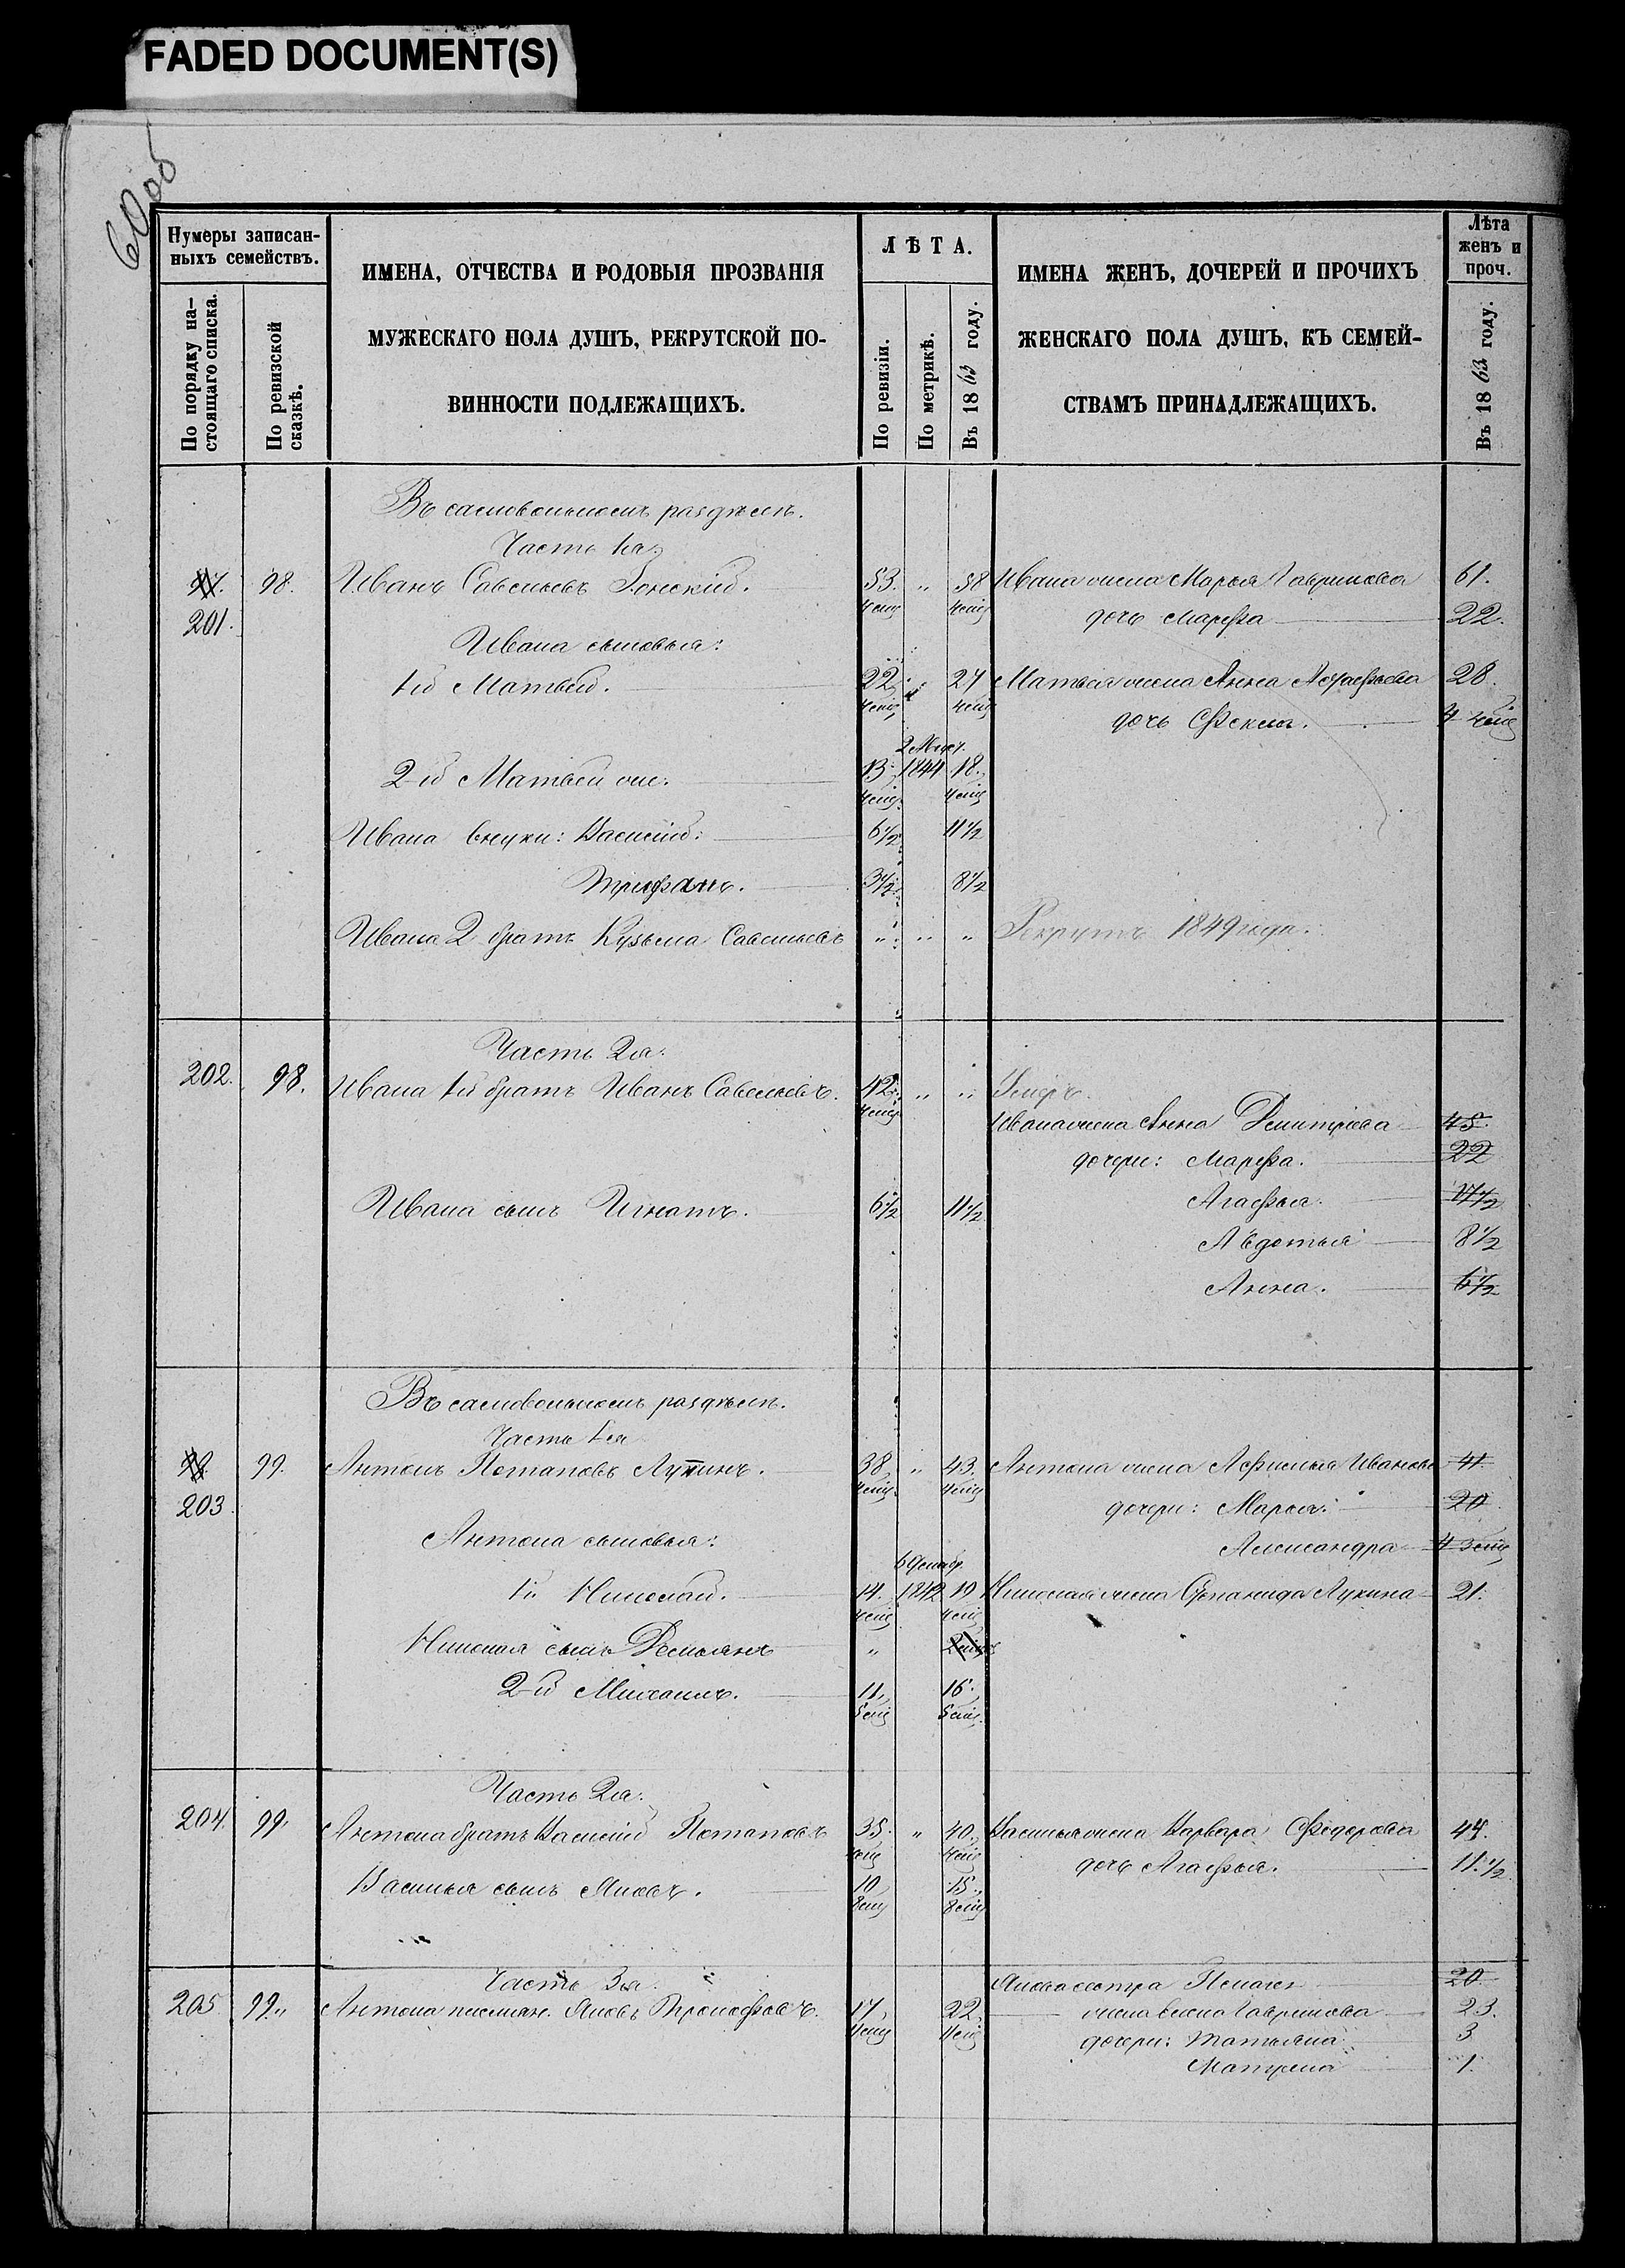 FADED DOCUMENT(S)
60 об
Нумеры записан-
ныхъ семействъ.
По порядку на-
стоящаго списка.
По ревизской
сказкѣ.
ИМЕНА, ОТЧЕСТВА И РОДОВЫЯ ПРОЗВАНІЯ
МУЖЕСКАГО ПОЛА ДУШЪ, РЕКРУТСКОЙ ПО-
ВИННОСТИ ПОДЛЕЖАЩИХЪ.
ЛѢТА.
По ревизіи.
По метрикѣ.
Въ 1863 году.
ИМЕНА ЖЕНЪ, ДОЧЕРЕЙ И ПРОЧИХЪ
ЖЕНСКАГО ПОЛА ДУШЪ, КЪ СЕМЕЙ-
СТВАМЪ ПРИНАДЛЕЖАЩИХЪ.
Лѣта
женъ и
проч.
Въ 1863 году.
Въ самовольномъ раздѣлѣ.
Часть 1я.
98. Иванъ Савельевъ 53. " 58 Ивана жена Марья Гаврилова 61.
201. дочь Марѳа 22.
Ивана сыновья:
1й Матвей. 22 " 27 Матвея жена Анна 28.
дочь Ѳекла. 4
2й Матвей же. 13. 1844 18.
Ивана внуки: Василій: 6½ 11½
Трифанъ. 3½ 8½
Ивана 2 братъ Кузьма Савельевъ " " " Рекрутъ 1849 года.
Часть 2я.
202. 98. Ивана 1й братъ Иванъ Савельевъ. 42. " " Умеръ.
Ивана жена Анна Дмитріева 45.
дочери: Марѳа. 22
Ивана сынъ Игнатъ. 6½ 11½ Агаѳья. 17½
Авдотья 8½
Анна. 6½
Въ самовольномъ раздѣлѣ.
Часть 1я
99. Антонъ Потаповъ 38 " 43. Антона жена Аѳимья Иванова 41
203. дочери: Марья. 20
Антона сыновья: Александра 4
6 Декабр.
1й Николай. 14. 1842 19 Николая жена Степанида Лукина 21.
Николая сынъ Демьянъ "
2й Михаилъ. 11. 16.
Часть 2я.
204. 99. Антона братъ Василій Потаповъ 35. " 40. Василья жена Варвара Ѳедорова 44.
дочь Агаѳья. 11.½
Василья сынъ Яковъ. 10 15.
Часть 3я. Якова сестра 20
205 99. Антона племян. Яковъ Прокофьевъ. 17 22 жена Гаврилова 23.
дочери: Татьяна 3
Матрена 1.